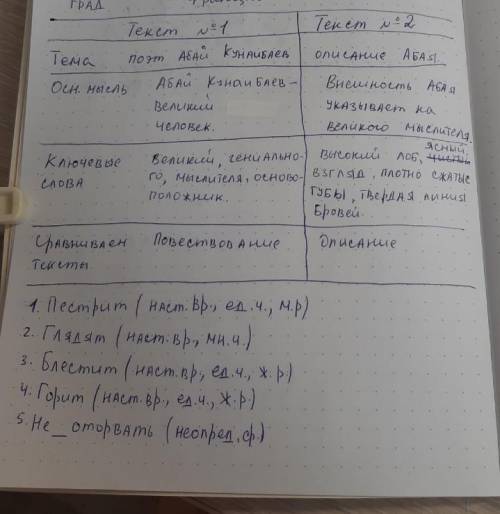 ГРАД
Текст №1 Текст №2
Тема поэт Абай Кунанбаев описание Абая
Осн. мысль Абай Кунанбаев – великий человек. Внешность Абая указывает на великого мыслителя.
Ключевые слова великий, гениально-го, мыслителя, осново-положник. высокий лоб, ясный взгляд, плотно сжатые губы, твердая линия бровей.
Сравниваем тексты Повествование Описание
1. Пестрит (наст. вр., ед. ч., м.р)
2. Глядят (наст. вр., мн. ч.)
3. Блестит (наст. вр., ед. ч., ж. р.)
4. Горит (наст. вр., ед. ч., ж. р.)
5. Не_оторвать (неопред. ф.)